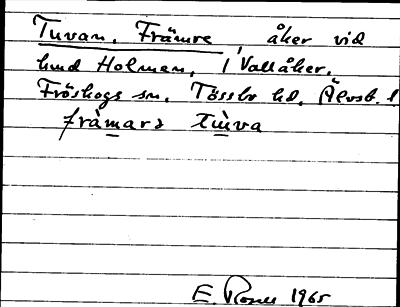 Tuvan, Främre, åker vid
hmd Holmen, i Vallåker,
Fröskogs sn, Tössbo hd, Älvsb. l
främarə
E. Rosell 1965